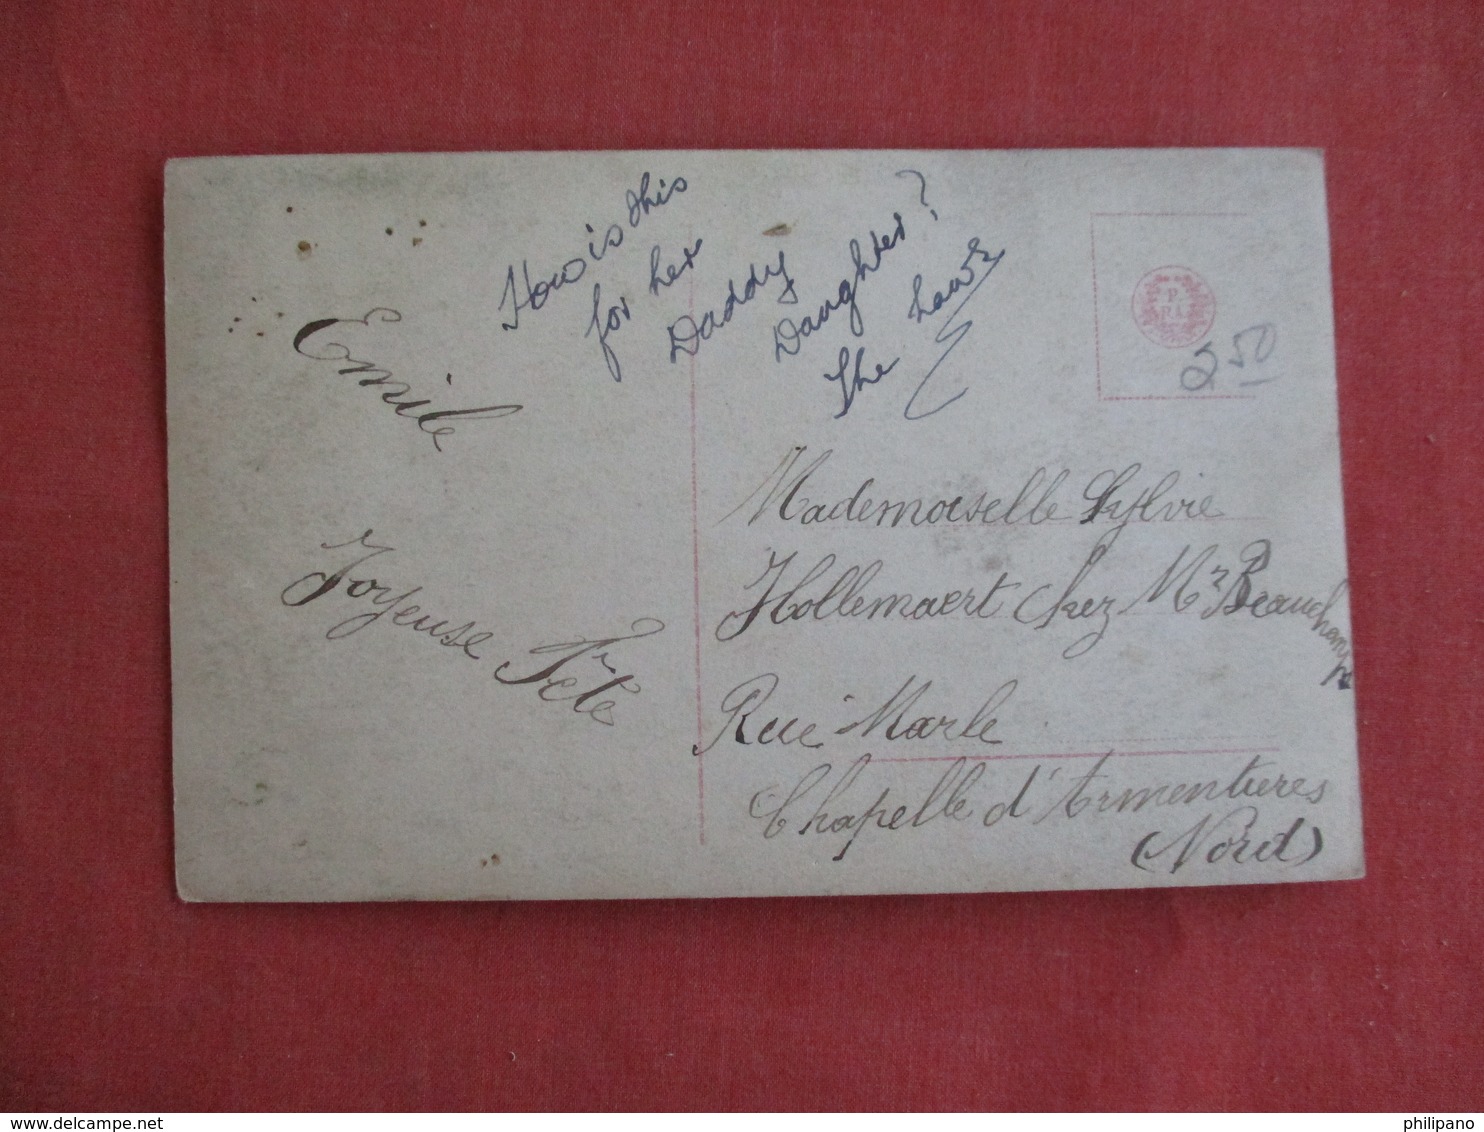 How is this
for her
Daddy
Daughter?
The Laws
Emile
Joyeuse Fête
P.
250
Mademoiselle Sylvie
Hollemaert Chez Mr Beauchamps
Rue Marle
Chapelle d'Armentieres
(Nord)
www.delcampe.net
philipano